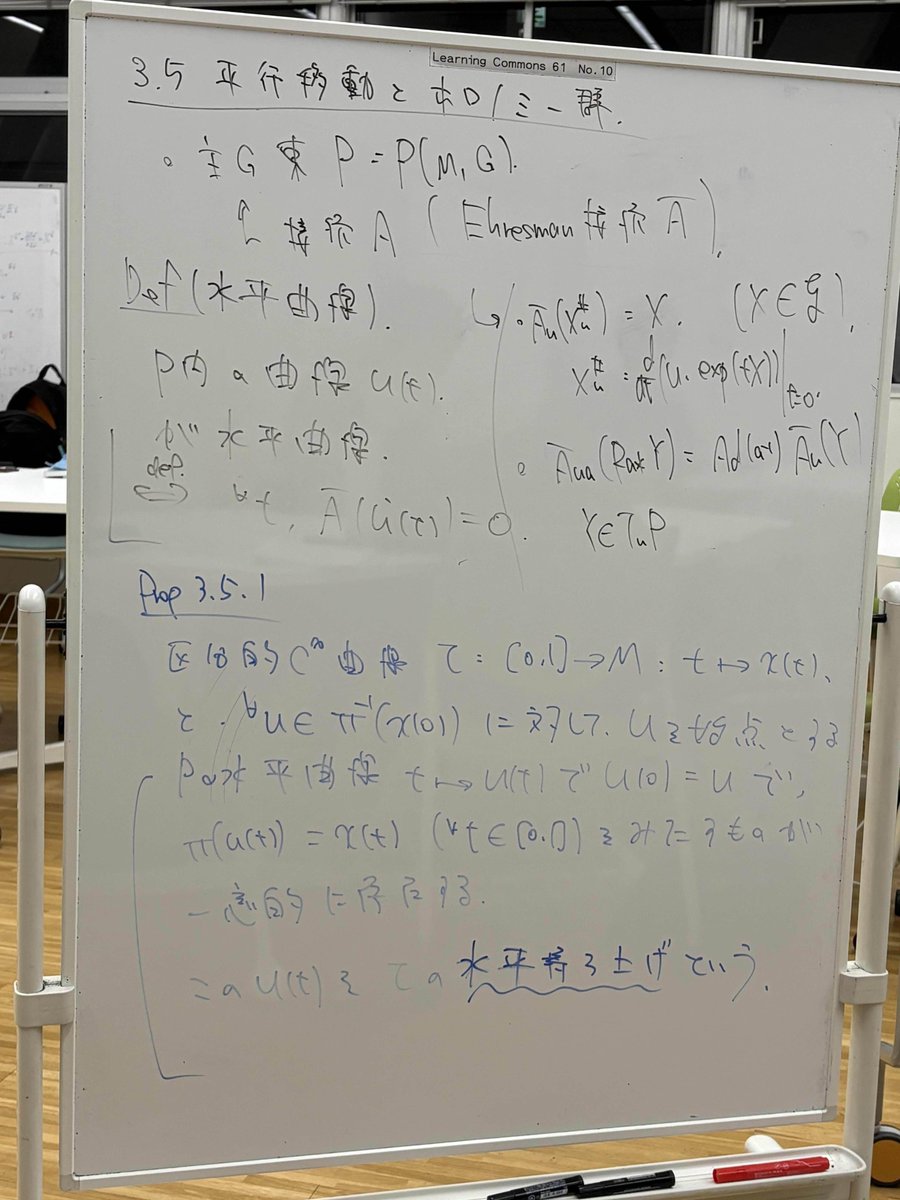 Learning Commons 61 No.10
3.5 平行移動とホロノミー群.
。主G束 P = P(M, G).
↑ 接続 A (Ehresman 接続 Ā).
Def (水平曲線).
P内の曲線 u(t).
が水平曲線.
def. ⇔ ∀t, Ā(u̇(t)) = 0.
↳ 。Āu(X#u) = X. (X ∈ 𝔤).
X#u = d/dt (u. exp(tX))|t=0.
。Āua(Ra*Y) = Ad(a-1) Āu(Y)
Y∈TuP
Prop 3.5.1
区分的C∞曲線 τ : [0,1] → M : t ↦ x(t).
と. ∀u ∈ π-1(x(0)) に対して. uを始点とする
Pの水平曲線 t ↦ u(t) で u(0) = u で,
π(u(t)) = x(t) (∀t ∈ [0,1]) をみたすものが
一意的に存在する.
このu(t)を τの水平持ち上げという.